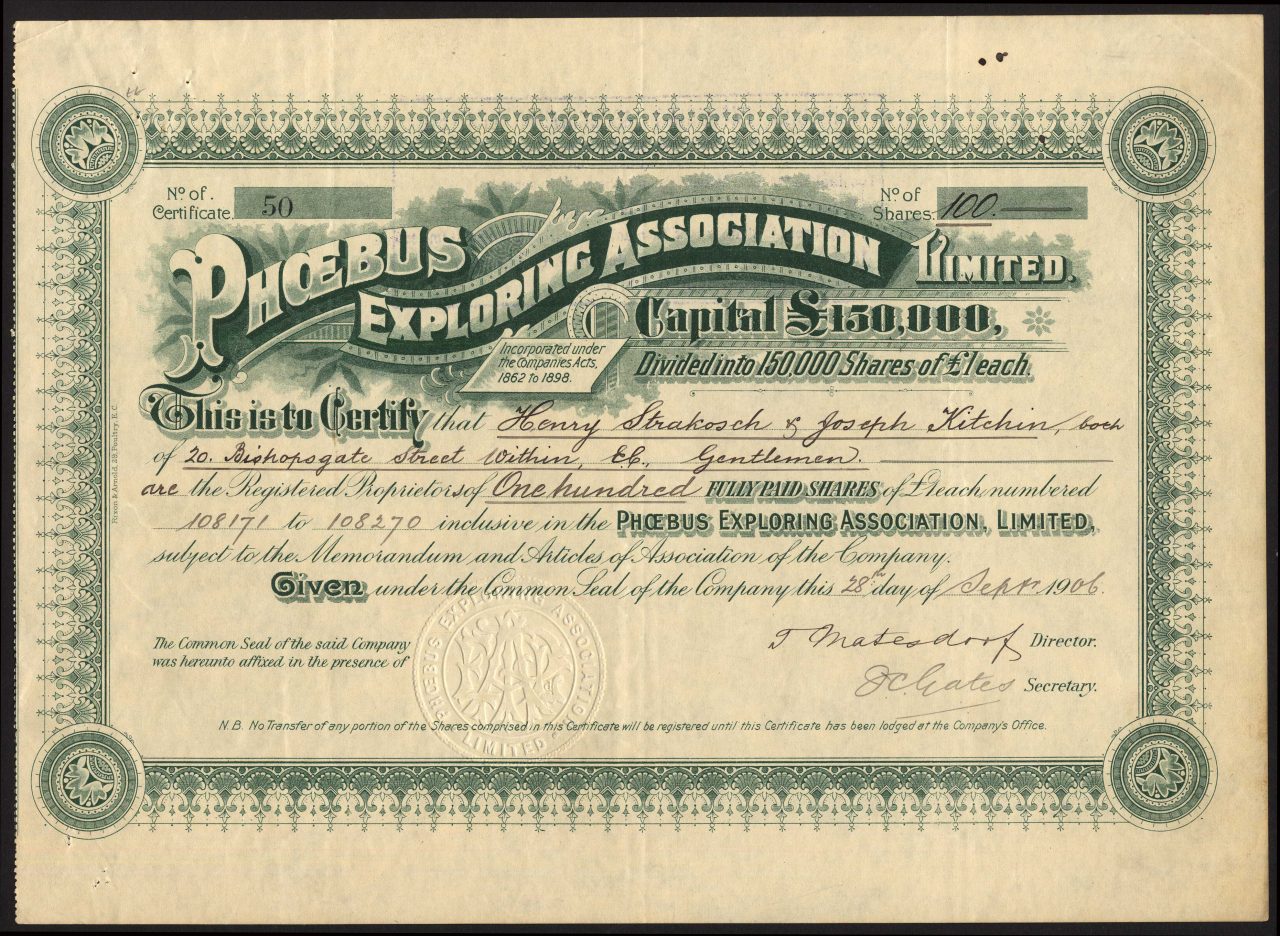 No. of Certificate. 50
No. of Shares. 100.
PHŒBUS EXPLORING ASSOCIATION LIMITED.
Capital £150,000,
Incorporated under
the Companies Acts,
1862 to 1898.
Divided into 150,000 Shares of £1 each.
This is to Certify that Henry Strakosch & Joseph Kitchin, both
of 20. Bishopsgate Street Within, E.C., Gentlemen.
are the Registered Proprietors of One hundred FULLY PAID SHARES of £1 each, numbered
108171 to 108270 inclusive in the PHŒBUS EXPLORING ASSOCIATION, LIMITED,
subject to the Memorandum and Articles of Association of the Company.
Given under the Common Seal of the Company this 28th day of Septr. 1906.
The Common Seal of the said Company
was hereunto affixed in the presence of
PHŒBUS EXPLORING ASSOCIATION LIMITED
F Matesdorf Director.
Gates Secretary.
N.B. No Transfer of any portion of the Shares comprised in this Certificate will be registered until this Certificate has been lodged at the Company's Office.
Faxon & Arnold, 29, Poultry, E.C.